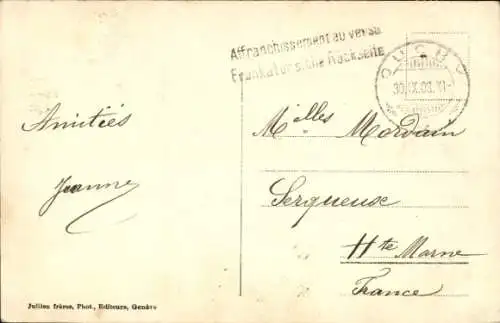 Affranchissement au verso
Frankatur siehe Rückseite
30.IX.03.XI
Amitiés
Jeanne
Melles Mordain
Serqueuse
Hte Marne
France
Jullien frères, Phot., Editeurs, Genève